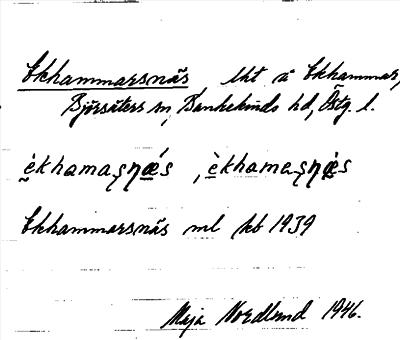 Ekhammarsnäs lht å Ekhammar,
Björsäters sn, Bankekinds hd, Östg. l.
èkhamaṣṇǽs, èkhamaṣṇæ̀s
Ekhammarsnäs ml kb 1939
Maja Nordlund 1946.